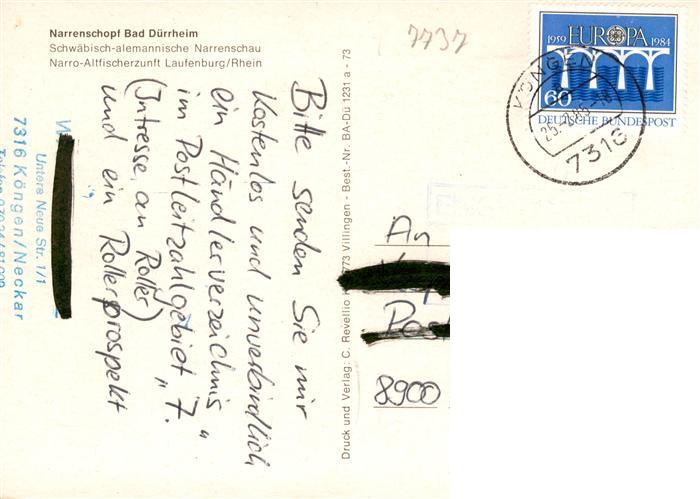 Narrenschopf Bad Dürrheim
Schwäbisch-alemannische Narrenschau
Narro-Altfischerzunft Laufenburg/Rhein
7737
1959 EUROPA 1984
60
DEUTSCHE BUNDESPOST
KÖNGEN
7316
Bitte senden Sie mir
kostenlos und unverbindlich
ein Händlerverzeichnis
im Postleitzahlgebiet "7."
(Intresse an Roller)
und ein Rollerprospekt
Untere Neue Str. 1/1
7316 Köngen/Neckar
Druck und Verlag: C. Revellio 773 Villingen - Best.-Nr. BA-Dü 1231 a - 73
An
8900